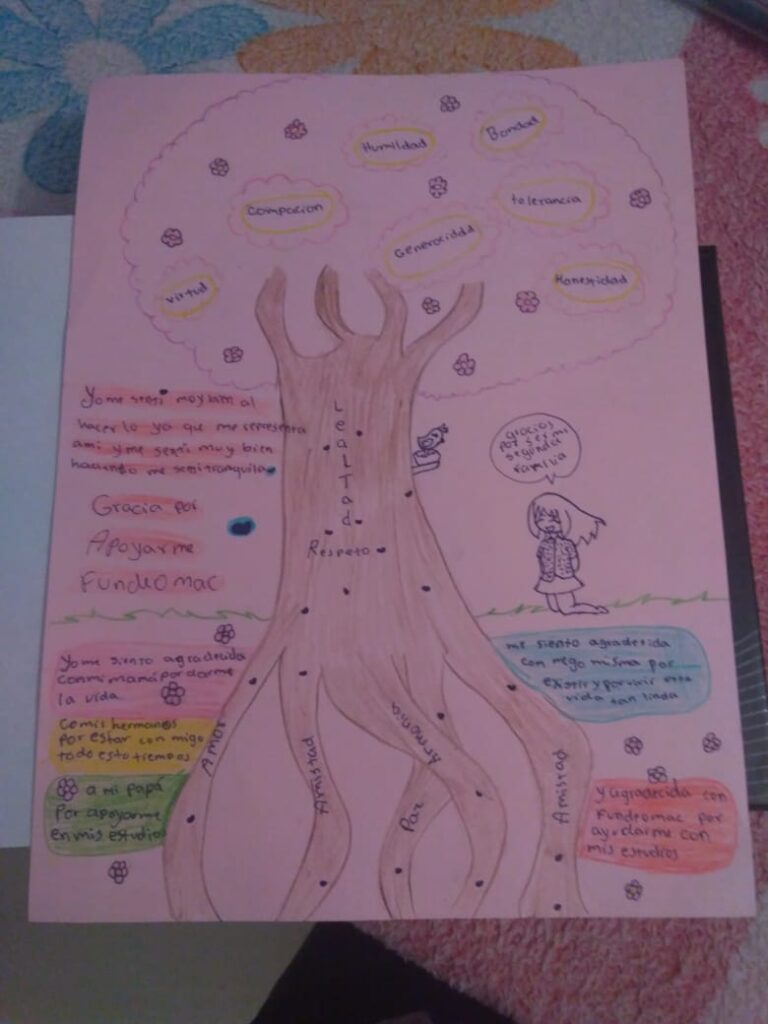 Humildad
Bondad
Compacion
tolerancia
Generocidad
Virtud
Honestidad
Yo me senti muy bien al
hacerlo ya que me representa
ami y me senti muy bien
haciendo me senti tranquila
Gracia por
Apoyarme
Fundromac
Lealtad
Respeto
Gracias
por ser mi
segunda
familia
Yo me siento agradecida
con mi mamá por darme
la vida
Co mis hermanos
por estar con migo
todo esto tiempos
a mi papá
por apoyarme
en mis estudios
me siento agradecida
con mego misma por
existir y por vivir esta
vida tan linda
y agradecida con
Fundromac por
ayudarme con
mis estudios
Amor
Amistad
Paz
Armonia
Amistad